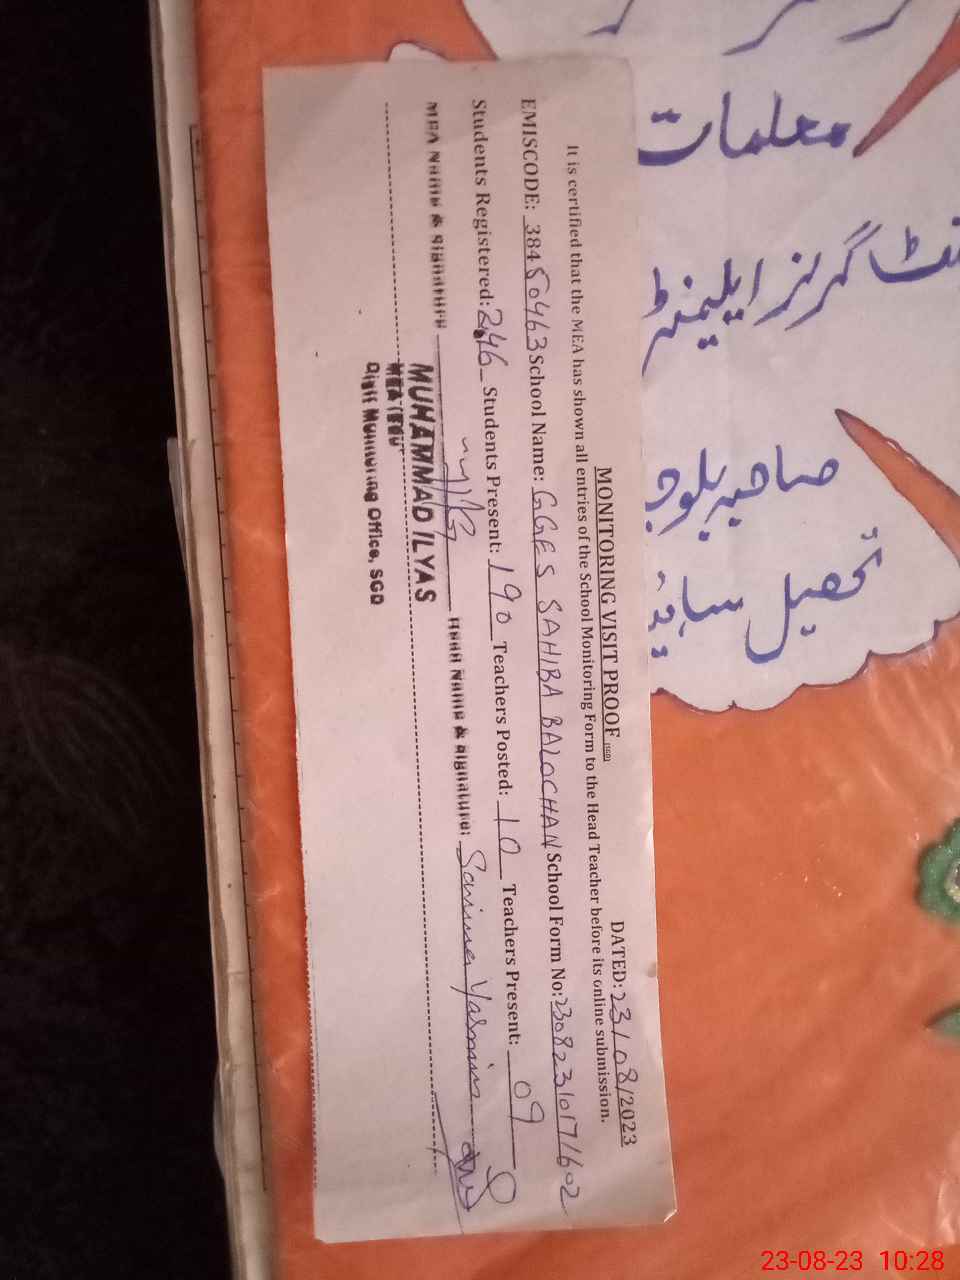 MONITORING VISIT PROOF (SGD)
DATED: 23/08/2023
It is certified that the MEA has shown all entries of the School Monitoring Form to the Head Teacher before its online submission.
EMISCODE: 38450463 School Name: GGES SAHIBA BALOCHAN School Form No: 23082310171602
Students Registered: 246 Students Present: 190 Teachers Posted: 10 Teachers Present: 09
MEA Name & Signature Head Name & Signature: Yasmin
MUHAMMAD ILYAS
MEA
Distt Monitoring Office, SGD
معلمات
گرلز ایلیمنٹری
صاحبہ بلوچ
تحصیل
23-08-23 10:28